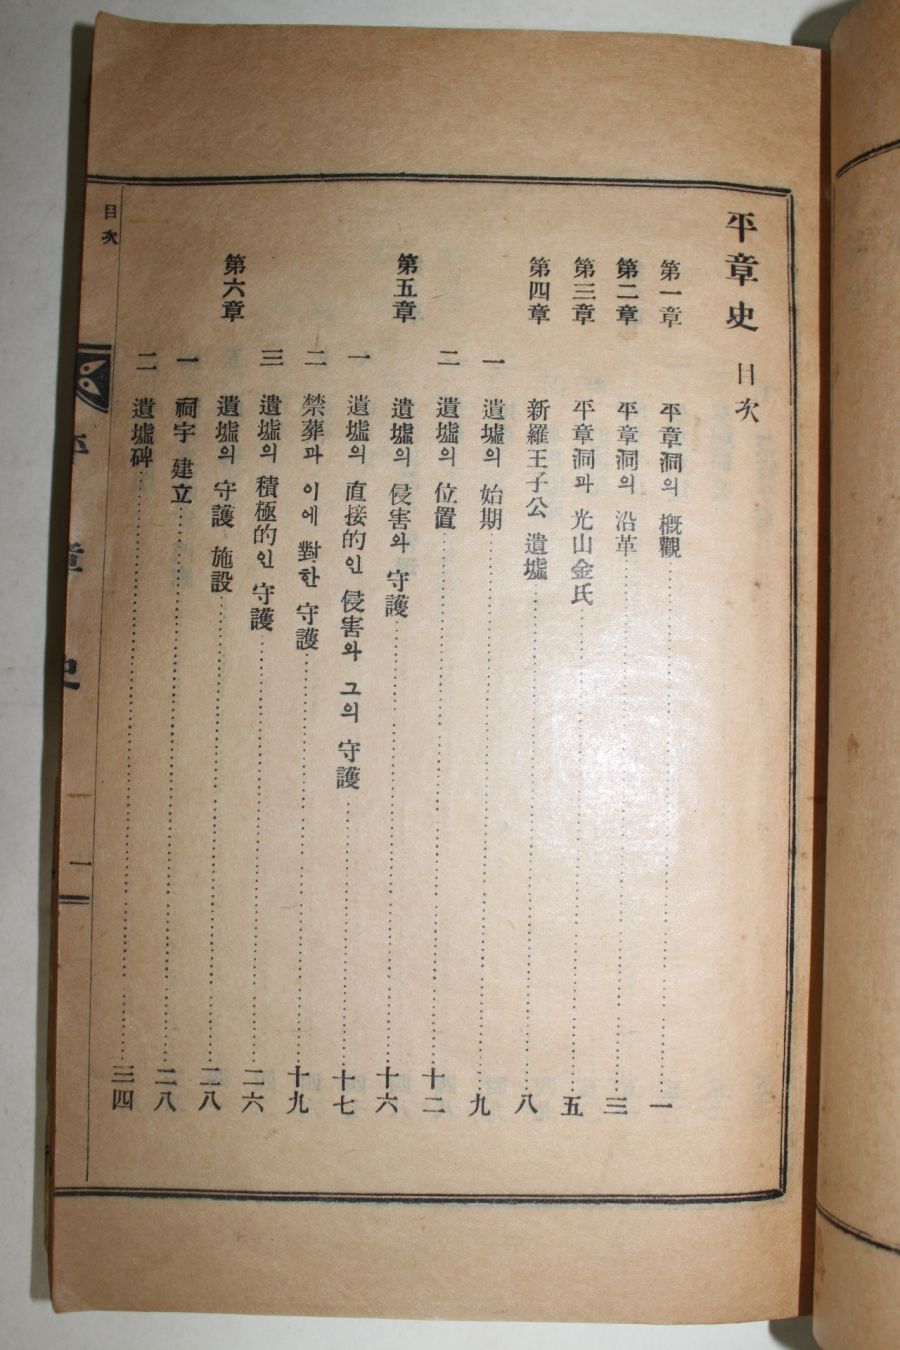 平章史 目次
第一章 平章洞의 槪觀 一
第二章 平章洞의 沿革 三
第三章 平章洞과 光山金氏 五
第四章 新羅王子公 遺墟 八
一 遺墟의 始期 九
二 遺墟의 位置 十二
第五章 遺墟의 侵害와 守護 十六
一 遺墟의 直接的인 侵害와 그의 守護 十七
二 禁葬과 이에 對한 守護 十九
三 遺墟의 積極的인 守護 二六
第六章 遺墟의 守護 施設 二八
一 祠宇 建立 二八
二 遺墟碑 三四
目次
平章史
一